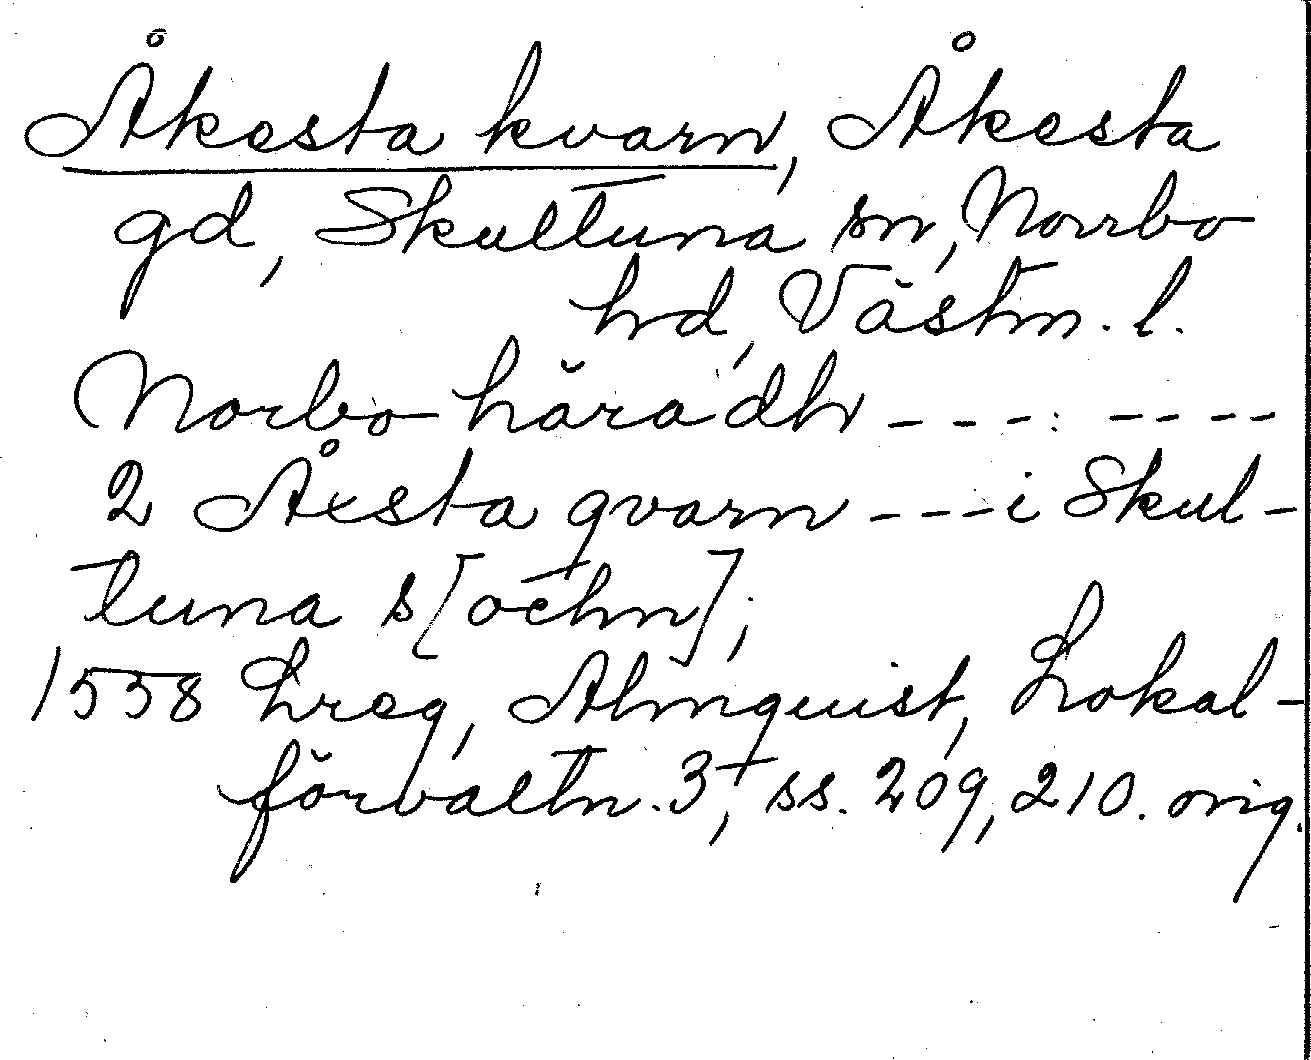 Åkesta kvarn, Åkesta
gd, Skultuna sn, Norrbo
hd, Västm. l.
Norbo häradh ---: ----
2 Åxsta qvarn --- i Skul-
tuna s[ochn];
1558 Lreg, Almquist, Lokal-
förvaltn. 3, ss. 209, 210. orig.